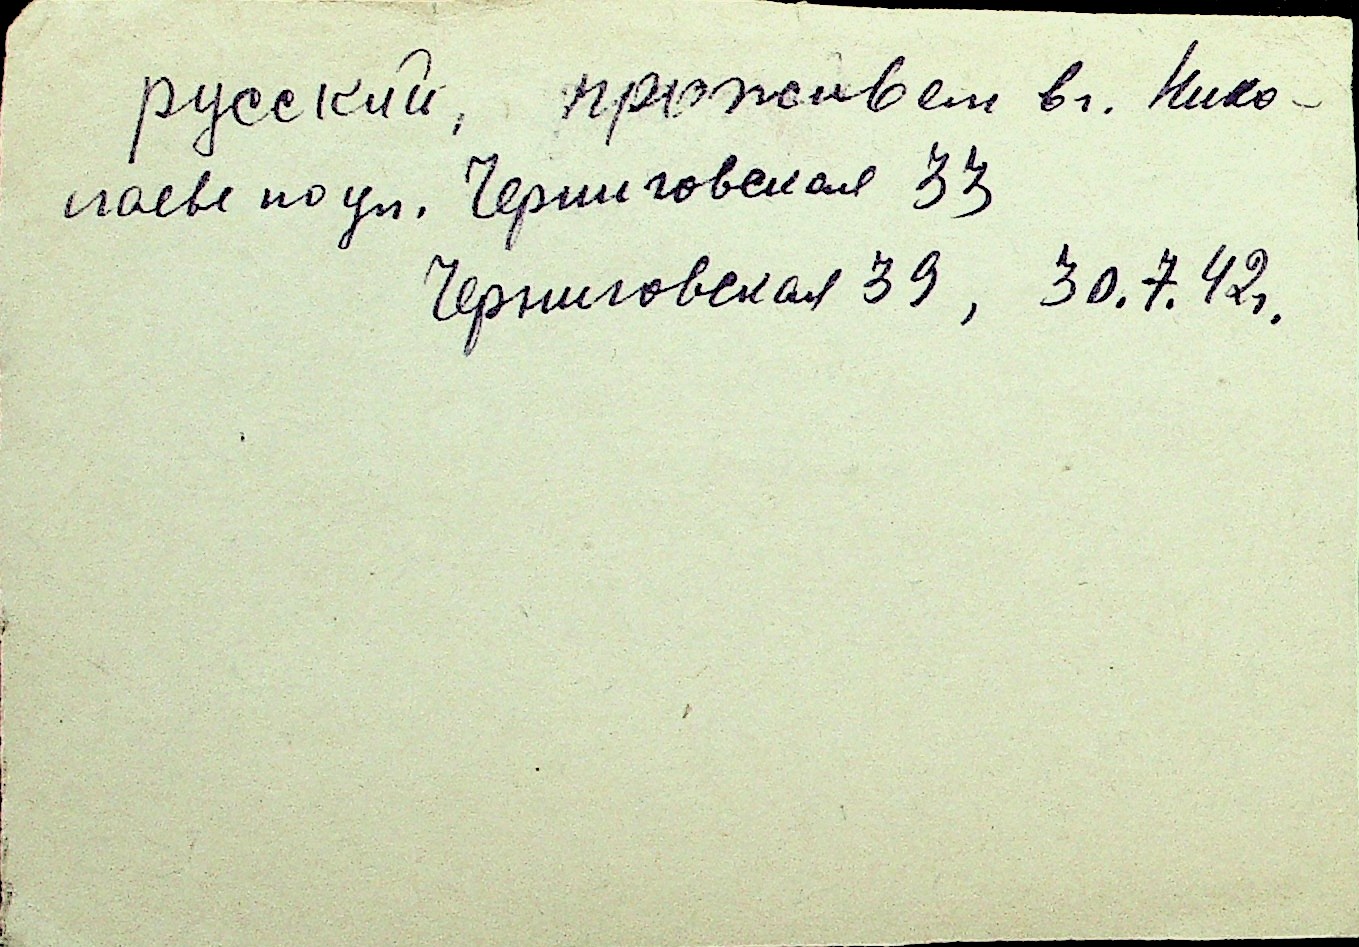 русский, проживает в г. Нико-
лаеве по ул. Черниговская 33
Черниговская 39, 30.7.42г.